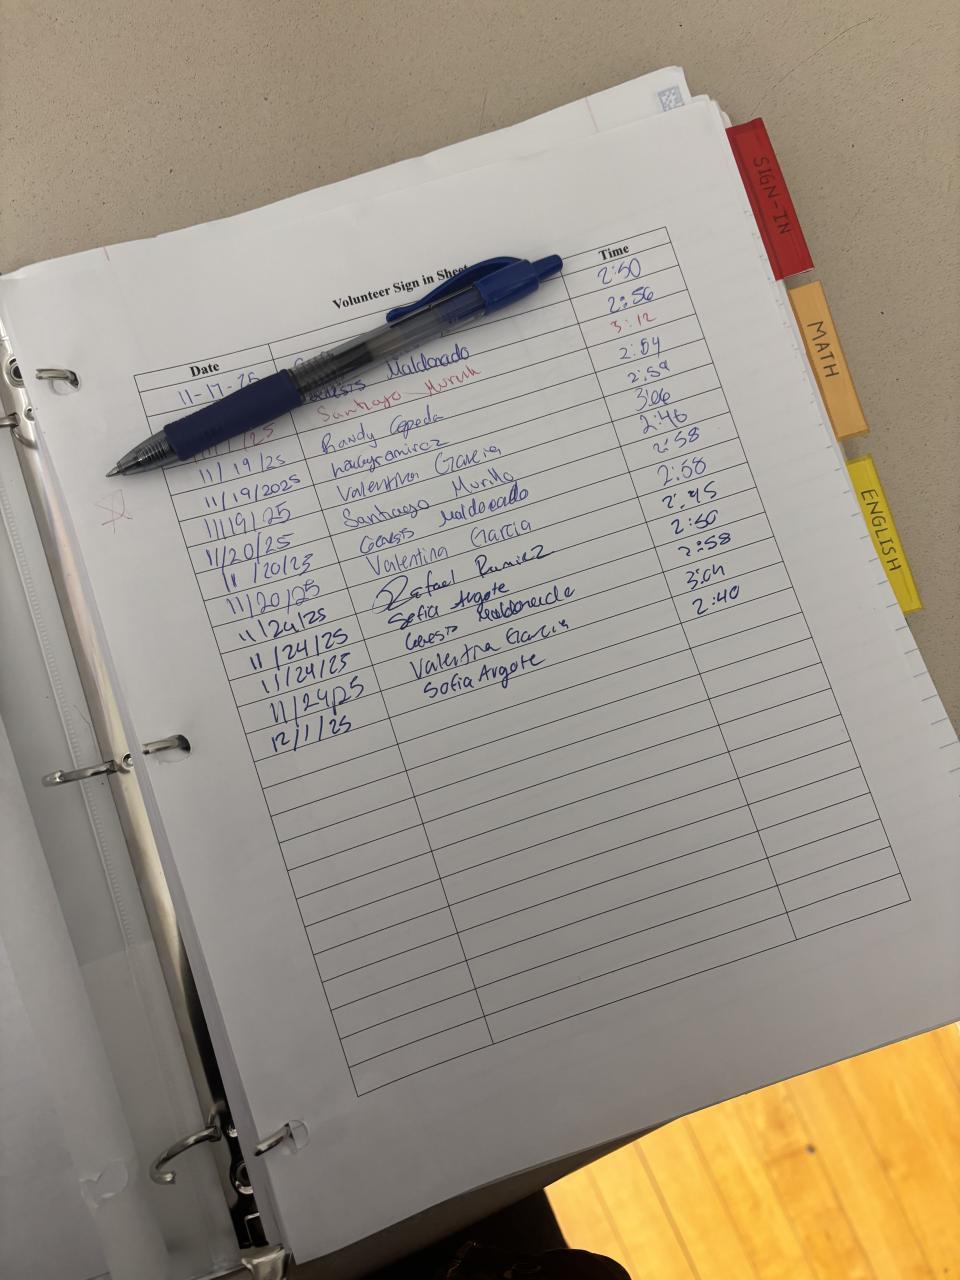 Volunteer Sign in Sheet
Date Time
11-17-25 2:50
Maldonado 2:56
/25 Santiago Murillo 3:12
11/19/25 Randy Cepeda 2:54
11/19/2025 2:59
11/19/25 Valentina Garcia 3:06
11/20/25 Santiago Murillo 2:46
11/20/25 Genesis Maldonado 2:58
11/20/25 Valentina Garcia 2:58
11/24/25 Rafael Ramirez 2:45
11/24/25 Sofia Argote 2:50
11/24/25 Genesis Maldonado 2:58
11/24/25 Valentina Garcia 3:04
12/1/25 Sofia Argote 2:40
SIGN-IN
MATH
ENGLISH